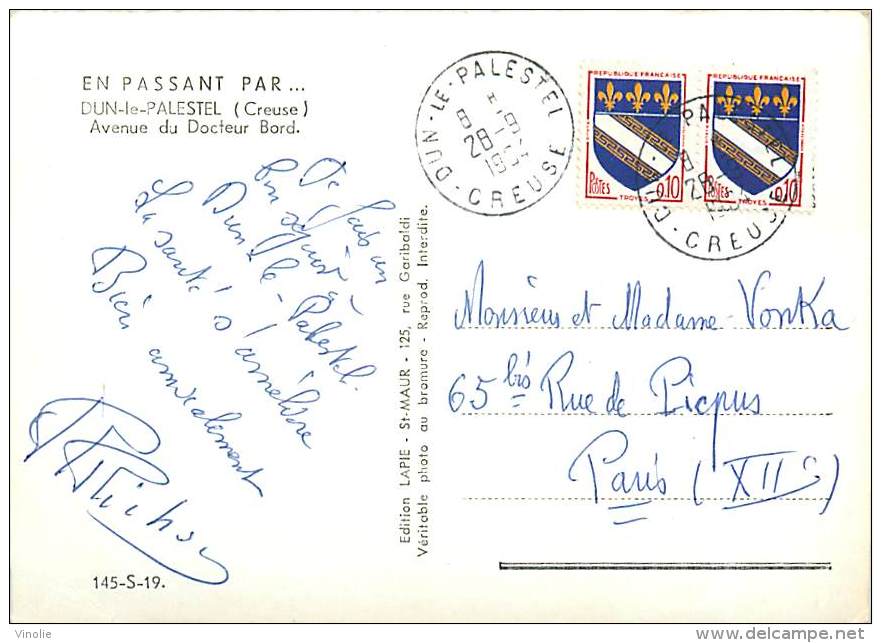 EN PASSANT PAR...
DUN-le-PALESTEL (Creuse)
Avenue du Docteur Bord.
Je fais un
bon séjour à
Dun-le-Palestel.
La santé s'améliore
Bien amicalement
145-S-19.
Edition LAPIE - St-MAUR - 125, rue Garibaldi
Véritable photo au bromure - Reprod. Interdite.
DUN-LE-PALESTEL
28-9
CREUSE
REPUBLIQUE FRANÇAISE
POSTES
0,10
TROYES
REPUBLIQUE FRANÇAISE
POSTES
0,10
TROYES
CREUSE
Monsieur et Madame Vonka
65 bis Rue de Picpus
Paris (XIIe)
Vinolie
www.delcampe.net